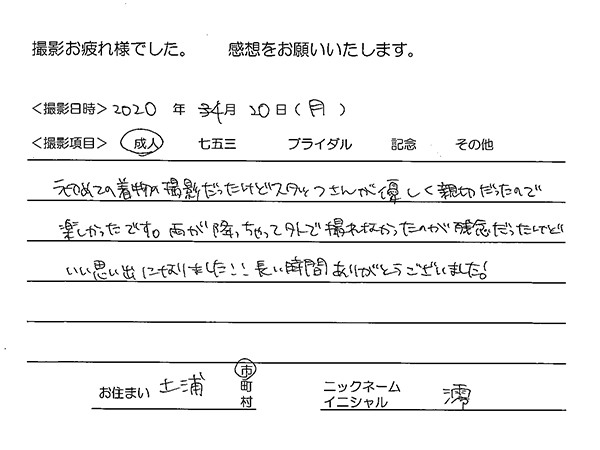 撮影お疲れ様でした。 感想をお願いいたします。
<撮影日時> 2020 年 4月 20日(月)
<撮影項目> 成人 七五三 ブライダル 記念 その他
初めての着物の撮影だったけどスタッフさんが優しく親切だったので
楽しかったです。雨が降っちゃって外で撮れなかったのが残念だったけど
いい思い出になりました!!長い時間ありがとうございました!
お住まい 土浦 市 町 村
ニックネーム イニシャル 澪